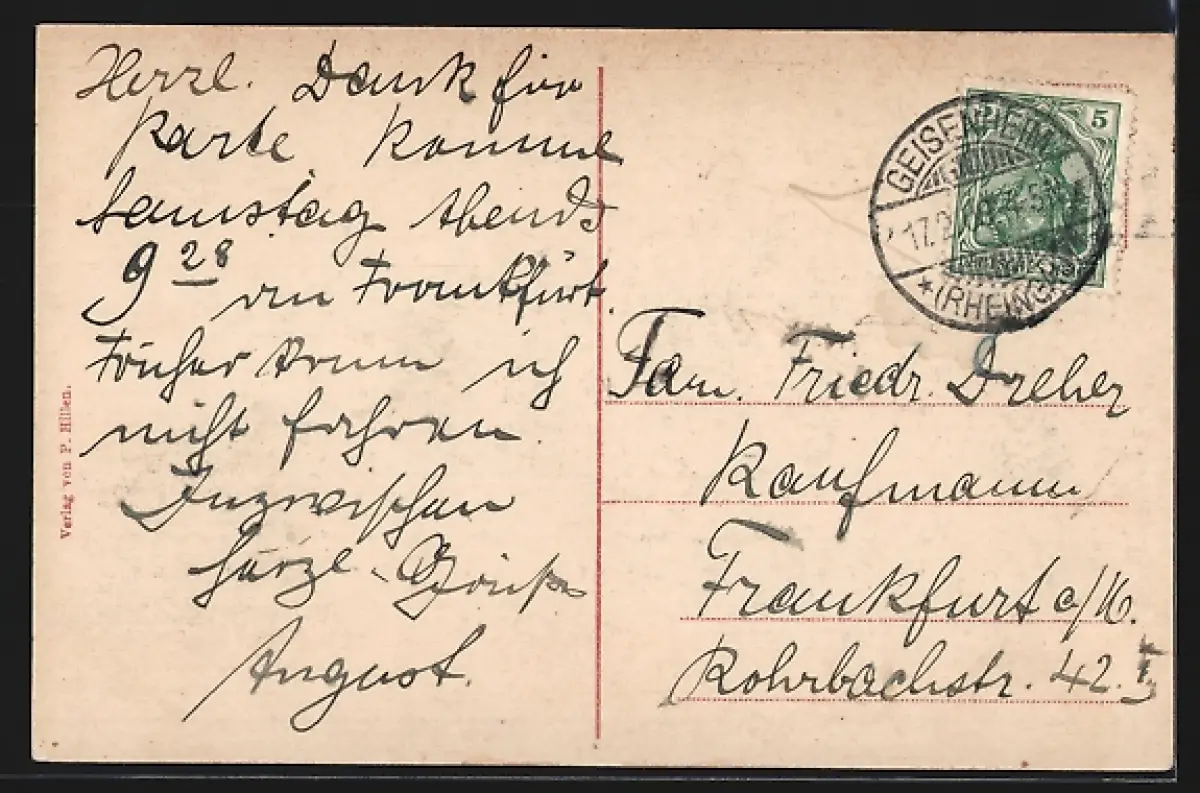 Herzl. Dank für
Karte Komme
Samstag Abends
9 28 an Frankfurt.
Früher kann ich
nicht fahren.
Inzwischen
herzl. Grüße
August.
Verlag von P. Hillen.
GEISENHEIM
17.2
*(RHEINGAU
5
Fam. Friedr. Dreher
Kaufmann
Frankfurt a/M.
Rohrbachstr. 42.